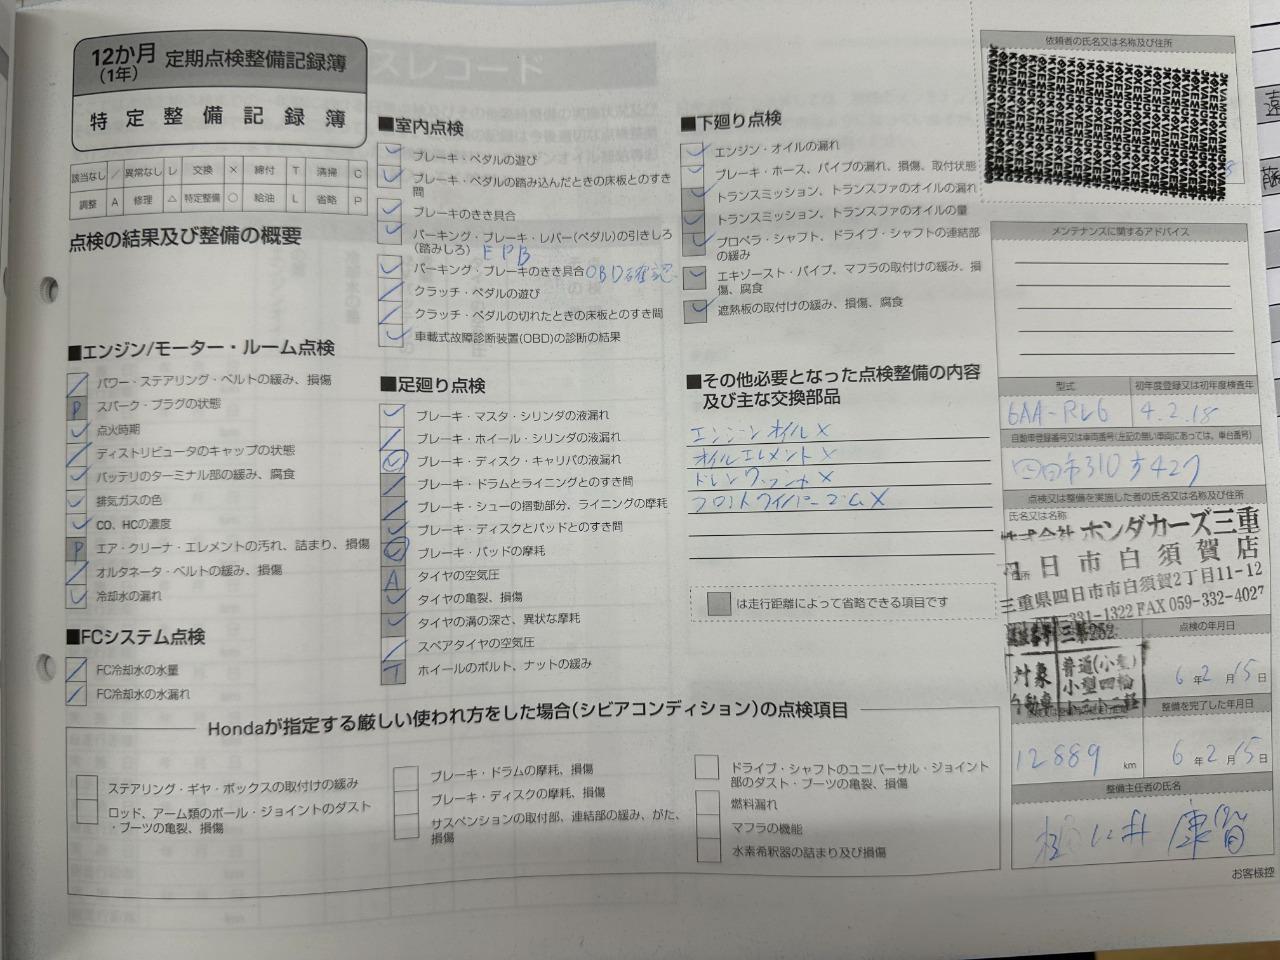 12か月
(1年)
定期点検整備記録簿
特定整備記録簿
該当なし / 異常なし レ 交換 × 締付 T 清掃 C
調整 A 修理 △ 特定整備 ○ 給油 L 省略 P
点検の結果及び整備の概要
■エンジン/モーター・ルーム点検
/ パワー・ステアリング・ベルトの緩み、損傷
P スパーク・プラグの状態
レ 点火時期
/ ディストリビュータのキャップの状態
レ バッテリのターミナル部の緩み、腐食
レ 排気ガスの色
レ CO、HCの濃度
P エア・クリーナ・エレメントの汚れ、詰まり、損傷
/ オルタネータ・ベルトの緩み、損傷
レ 冷却水の漏れ
■FCシステム点検
/ FC冷却水の水量
/ FC冷却水の水漏れ
■室内点検
レ ブレーキ・ペダルの遊び
レ ブレーキ・ペダルの踏み込んだときの床板とのすき
間
レ ブレーキのきき具合
レ パーキング・ブレーキ・レバー(ペダル)の引きしろ
(踏みしろ) EPB
レ パーキング・ブレーキのきき具合 OBD確認
/ クラッチ・ペダルの遊び
/ クラッチ・ペダルの切れたときの床板とのすき間
レ 車載式故障診断装置(OBD)の診断の結果
■足廻り点検
レ ブレーキ・マスタ・シリンダの液漏れ
/ ブレーキ・ホイール・シリンダの液漏れ
レ ブレーキ・ディスク・キャリパの液漏れ
/ ブレーキ・ドラムとライニングとのすき間
/ ブレーキ・シューの摺動部分、ライニングの摩耗
レ ブレーキ・ディスクとパッドとのすき間
レ ブレーキ・パッドの摩耗
A タイヤの空気圧
レ タイヤの亀裂、損傷
レ タイヤの溝の深さ、異状な摩耗
/ スペアタイヤの空気圧
T ホイールのボルト、ナットの緩み
■下廻り点検
レ エンジン・オイルの漏れ
レ ブレーキ・ホース、パイプの漏れ、損傷、取付状態
レ トランスミッション、トランスファのオイルの漏れ
レ トランスミッション、トランスファのオイルの量
レ プロペラ・シャフト、ドライブ・シャフトの連結部
の緩み
レ エキゾースト・パイプ、マフラの取付けの緩み、損
傷、腐食
レ 遮熱板の取付けの緩み、損傷、腐食
■その他必要となった点検整備の内容
及び主な交換部品
エンジンオイル ×
オイルエレメント ×
ドレンワッシャ ×
フロントワイパーゴム ×
は走行距離によって省略できる項目です
Hondaが指定する厳しい使われ方をした場合(シビアコンディション)の点検項目
ステアリング・ギヤ・ボックスの取付けの緩み
ロッド、アーム類のボール・ジョイントのダスト
・ブーツの亀裂、損傷
ブレーキ・ドラムの摩耗、損傷
ブレーキ・ディスクの摩耗、損傷
サスペンションの取付部、連結部の緩み、がた、
損傷
ドライブ・シャフトのユニバーサル・ジョイント
部のダスト・ブーツの亀裂、損傷
燃料漏れ
マフラの機能
水素希釈器の詰まり及び損傷
依頼者の氏名又は名称及び住所
メンテナンスに関するアドバイス
型式 初年度登録又は初年度検査年
6AA-RL6 4.2.18
自動車登録番号又は車両番号(左記の無い車両にあっては、車台番号)
四日市310す427
点検又は整備を実施した者の氏名又は名称及び住所
氏名又は名称
株式会社 ホンダカーズ三重
四日市白須賀店
住所
三重県四日市市白須賀2丁目11-12
331-1322 FAX 059-332-4027
三第252
対象 普通(小型)
小型四輪
点検の年月日
6年2月15日
整備を完了した年月日
12889 km 6年2月15日
整備主任者の氏名
お客様控